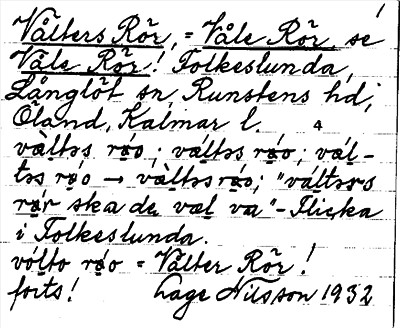 1
Vålters Rör, = Våle Rör, se
Våle Rör! Folkeslunda,
Långlöt sn, Runstens hd,
Öland, Kalmar l. 4
vàltəs ro; vàltəs ro; vál-
təs ro → vàltəsro; "váltərs
rør ska de væl va" - Flicka
i Folkeslunda.
vólto ro = Vålter Rör!
forts! Lage Nilsson 1932